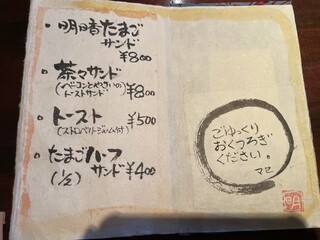 ・明日香たまご
サンド
¥800
・茶々サンド
(ベーコンとやさいの
トーストサンド) ¥800
・トースト ¥500
(ストロベリージャム付)
・たまごハーフ
(1/2) サンド ¥400
ごゆっくり
おくつろぎ
ください。
マロ